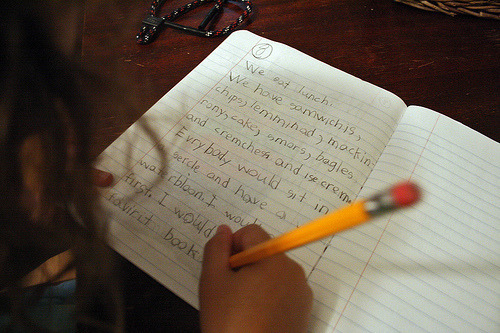 1
We eat lunch.
We have samwichis,
chips, lemminad, mackin
rony, cake, smars, bagles,
and cremchess and ise crem
Evrybody would sit in
sercle and have a
was rbloon. I wou
first. I would
book